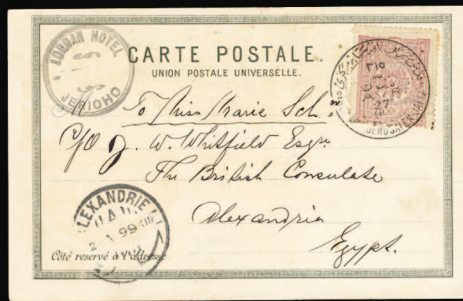 JORDAN HOTEL
JERICHO
CARTE POSTALE.
UNION POSTALE UNIVERSELLE.
JERUSALEM
27
To Miss Marie
C/O J. W. Whitfield Esqre
The British Consulate
Alexandria
Egypt.
ALEXANDRIE
99
Côté reservé à l'adresse